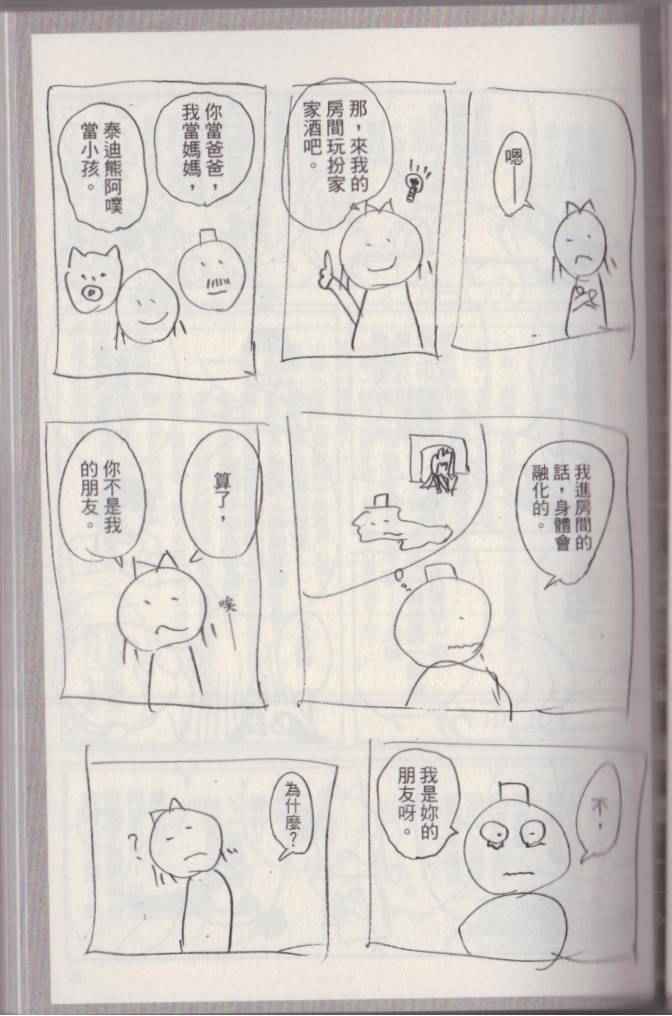 嗯——
那，來我的
房間玩扮家
家酒吧。
你當爸爸，
我當媽媽，
泰迪熊阿噗
當小孩。
我進房間的
話，身體會
融化的。
算了，
唉
你不是我
的朋友。
不，
我是妳的
朋友呀。
為什麼？
?